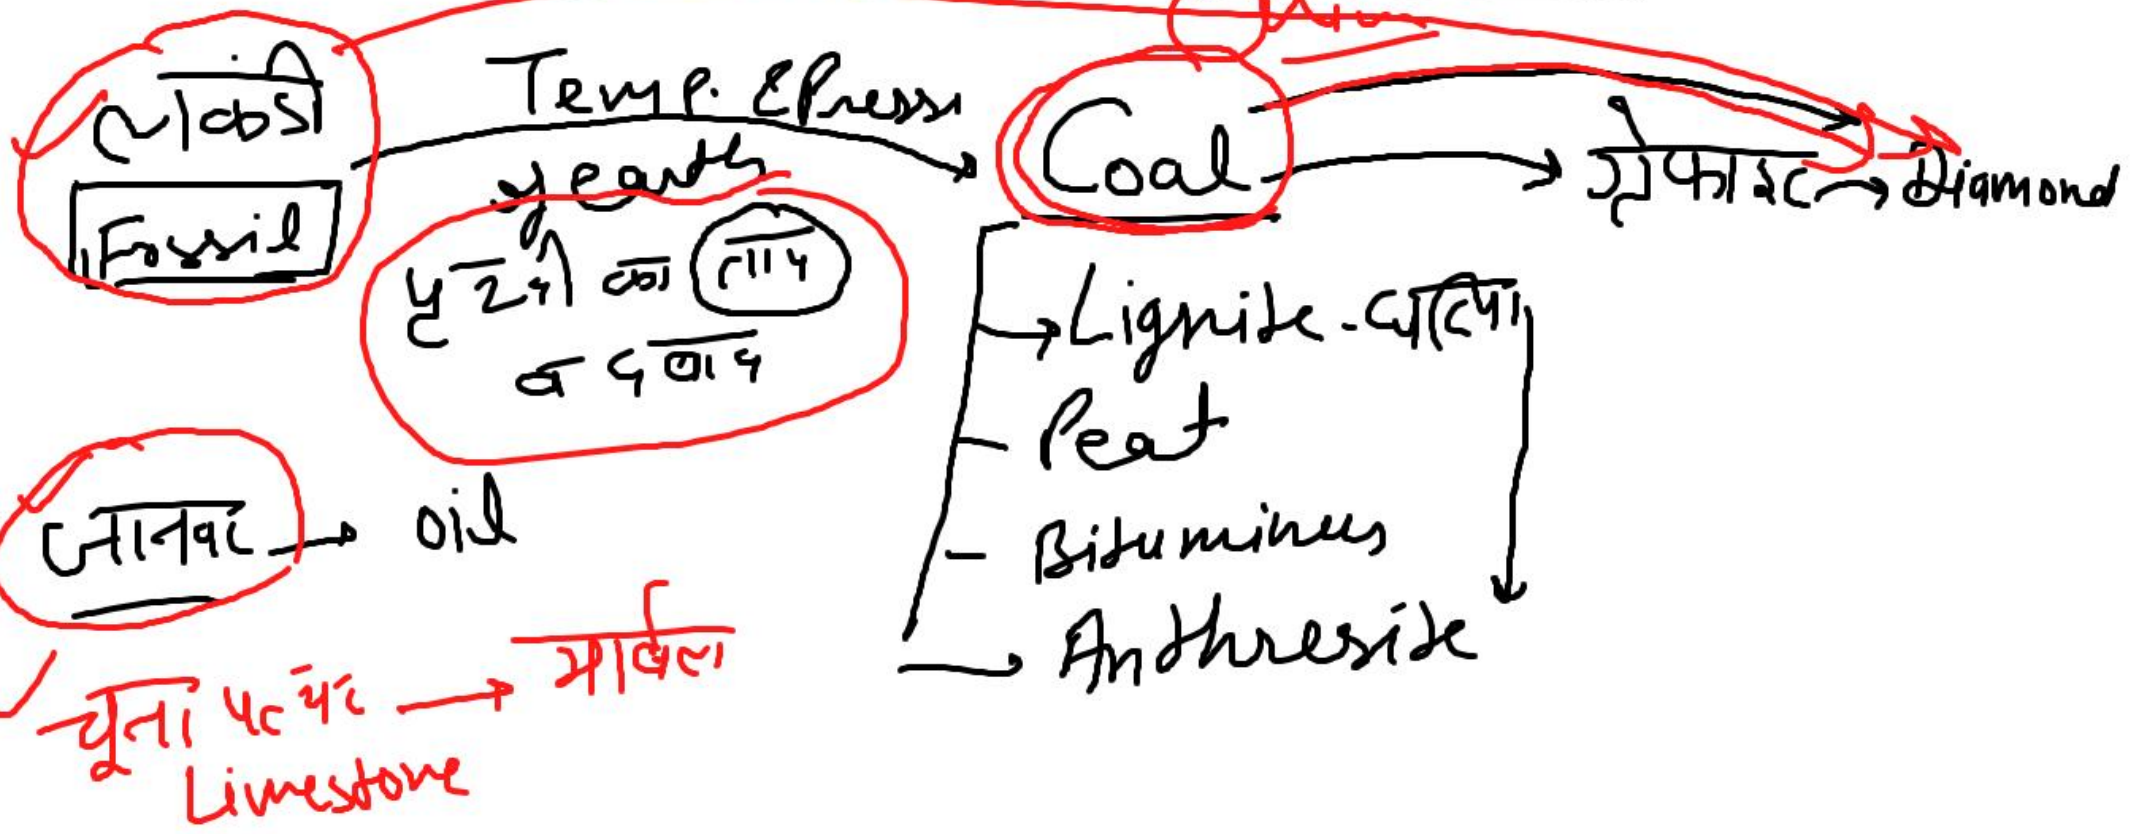 लकड़ी
Fossil
Temp. & Press
of earth
पृथ्वी का ताप
व दबाव
Coal
ग्रेफाइट
Diamond
Lignite - घटिया
Peat
Bituminus
Anthresite
जानवर
oil
चूना पत्थर
मार्बल
Limestone